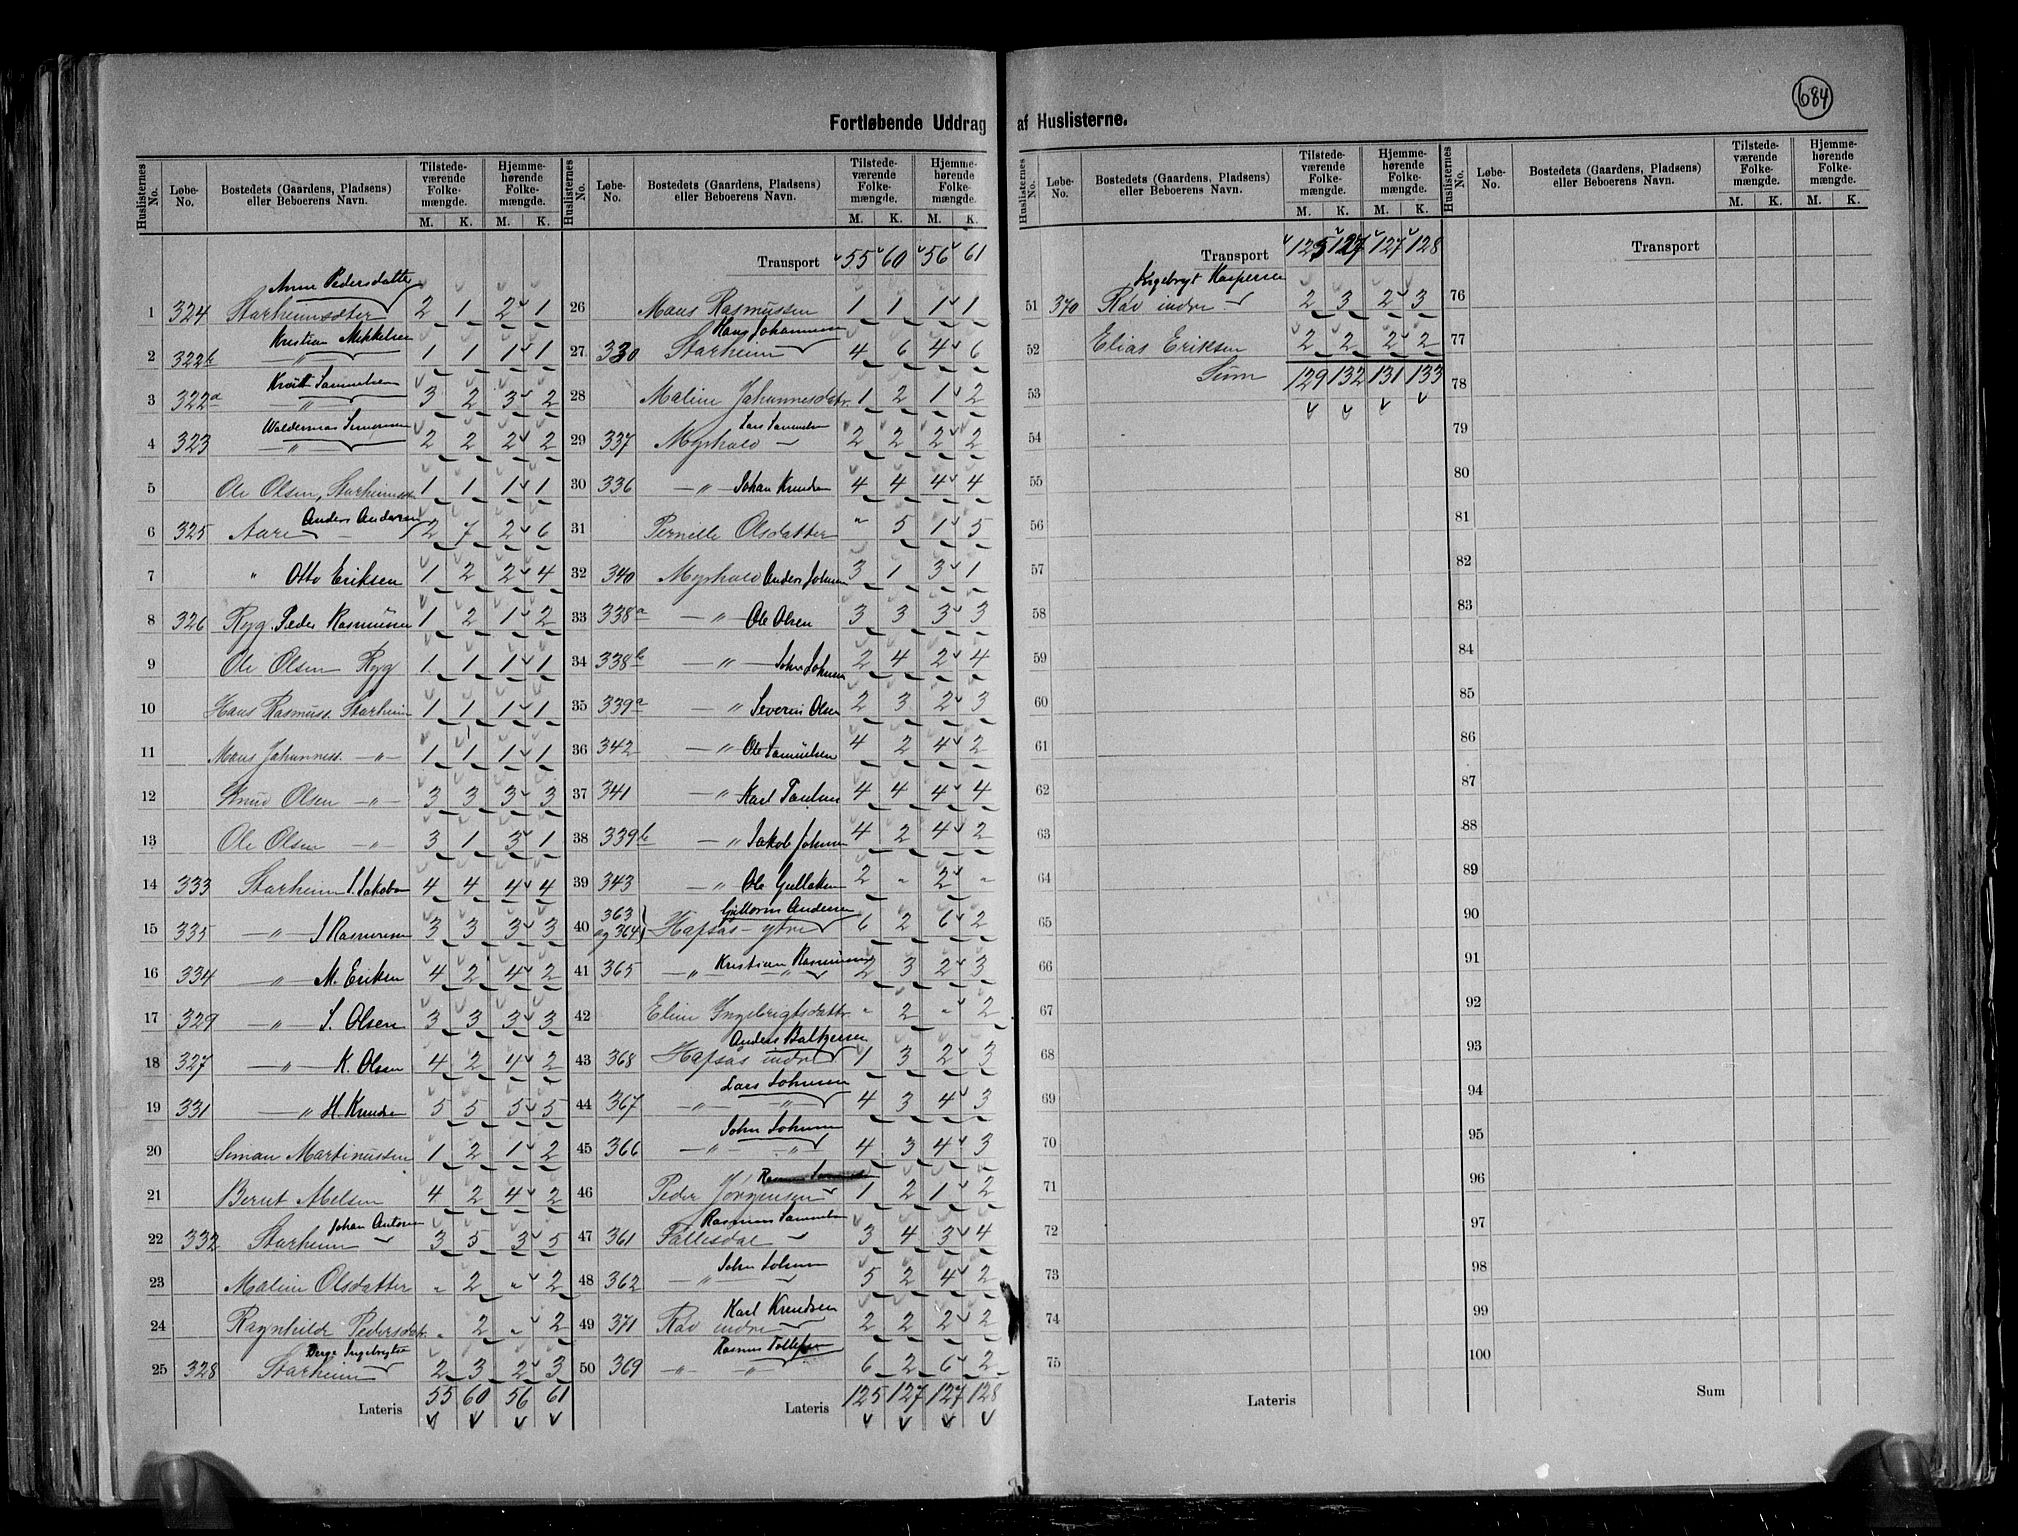 684
Fortløbende Uddrag af Huslisterne.
Huslisternes No. Løbe-No. Bostedets (Gaardens, Pladsens) eller Beboerens Navn. Tilstedeværende Folkemængde. M. K. Hjemmehørende Folkemængde. M. K.
1 324 Anne Pedersdatter Starheimsæter 2 1 2 1
2 322b Kristian Mikkelsen — " — 1 1 1 1
3 322a Knut Samuelsen — " — 3 2 3 2
4 323 Waldermar Simonsen — " — 2 2 2 2
5 Ole Olsen, Starheimsæter 1 1 1 1
6 325 Aare Anders Andersen 2 7 2 6
7 " Otto Eriksen 1 2 2 4
8 326 Ryg Peder Rasmussen 1 2 1 2
9 Ole Olsen Ryg 1 1 1 1
10 Hans Rasmuss. Starheim 1 1 1 1
11 Mons Johanness. — " — 1 1 1 1
12 Knud Olsen — " — 3 3 3 3
13 Ole Olsen — " — 3 1 3 1
14 333 Starheim S. Jakobsen 4 4 4 4
15 335 — " — S Rasmussen 3 3 3 3
16 334 — " — M. Eriksen 4 2 4 2
17 329 — " — S. Olsen 3 3 3 3
18 327 — " — K. Olsen 4 2 4 2
19 331 — " H. Knudsen 5 5 5 5
20 Simon Martinussen 1 2 1 2
21 Bernt Nielsen 4 2 4 2
22 332 Starheim Johan Antonsen 3 5 3 5
23 Maline Olsdatter " 2 " 2
24 Ragnhilde Pedersdtr. " 2 " 2
25 328 Børge Ingebrigtsen Starheim 2 3 2 3
Lateris 55 60 56 61
Huslisternes No. Løbe-No. Bostedets (Gaardens, Pladsens) eller Beboerens Navn. Tilstedeværende Folkemængde. M. K. Hjemmehørende Folkemængde. M. K.
Transport 55 60 56 61
26 Mons Rasmussen 1 1 1 1
27 330 Hans Johannesen Starheim 4 6 4 6
28 Maline Johannesdatr. 1 2 1 2
29 337 Myrhold — Lars Samuelsen 2 2 2 2
30 336 — " Johan Knudsen 4 4 4 4
31 Pernille Olsdatter " 5 1 5
32 340 Myrhold Anders Johnsen 3 1 3 1
33 338a — " — Ole Olsen 3 3 3 3
34 338b — " — John Johnsen 2 4 2 4
35 339a — " Severin Olsen 2 3 2 3
36 342 — " — Ole Samuelsen 4 2 4 2
37 341 — " Karl Paulsen 4 4 4 4
38 339b — " Jakob Johnsen 4 2 4 2
39 343 — " Ole Gullaksen 2 " 2 "
40 363 og 364 Guttorm Andersen Hafsås - ytre 6 2 6 2
41 365 — " — Kristian Rasmussen — " — 2 3 2 3
42 Eline Ingebrigtsdattr. " 2 " 2
43 368 Anders Baltzersen Hafsås indre 1 3 2 3
44 367 Lars Johnsen — " — " — 4 3 4 3
45 366 John Johnsen — " — " 4 3 4 3
46 Peder Jörgensen 1 2 1 2
47 361 Rasmus Samuelsen Follesdal 3 4 3 4
48 362 — " John Johnsen 5 2 4 2
49 371 Rav indre Karl Knudsen 2 2 2 2
50 369 — " — " Rasmus Tollefsen 6 2 6 2
Lateris 125 127 127 128
Huslisternes No. Løbe-No. Bostedets (Gaardens, Pladsens) eller Beboerens Navn. Tilstedeværende Folkemængde. M. K. Hjemmehørende Folkemængde. M. K.
Transport 125 127 127 128
51 370 Ingebrygt Kaspersen Rav indre 2 3 2 3
52 Elias Eriksen 2 2 2 2
53 Sum 129 132 131 133
54
55
56
57
58
59
60
61
62
63
64
65
66
67
68
69
70
71
72
73
74
75
Lateris
Huslisternes No. Løbe-No. Bostedets (Gaardens, Pladsens) eller Beboerens Navn. Tilstedeværende Folkemængde. M. K. Hjemmehørende Folkemængde. M. K.
Transport
76
77
78
79
80
81
82
83
84
85
86
87
88
89
90
91
92
93
94
95
96
97
98
99
100
Sum